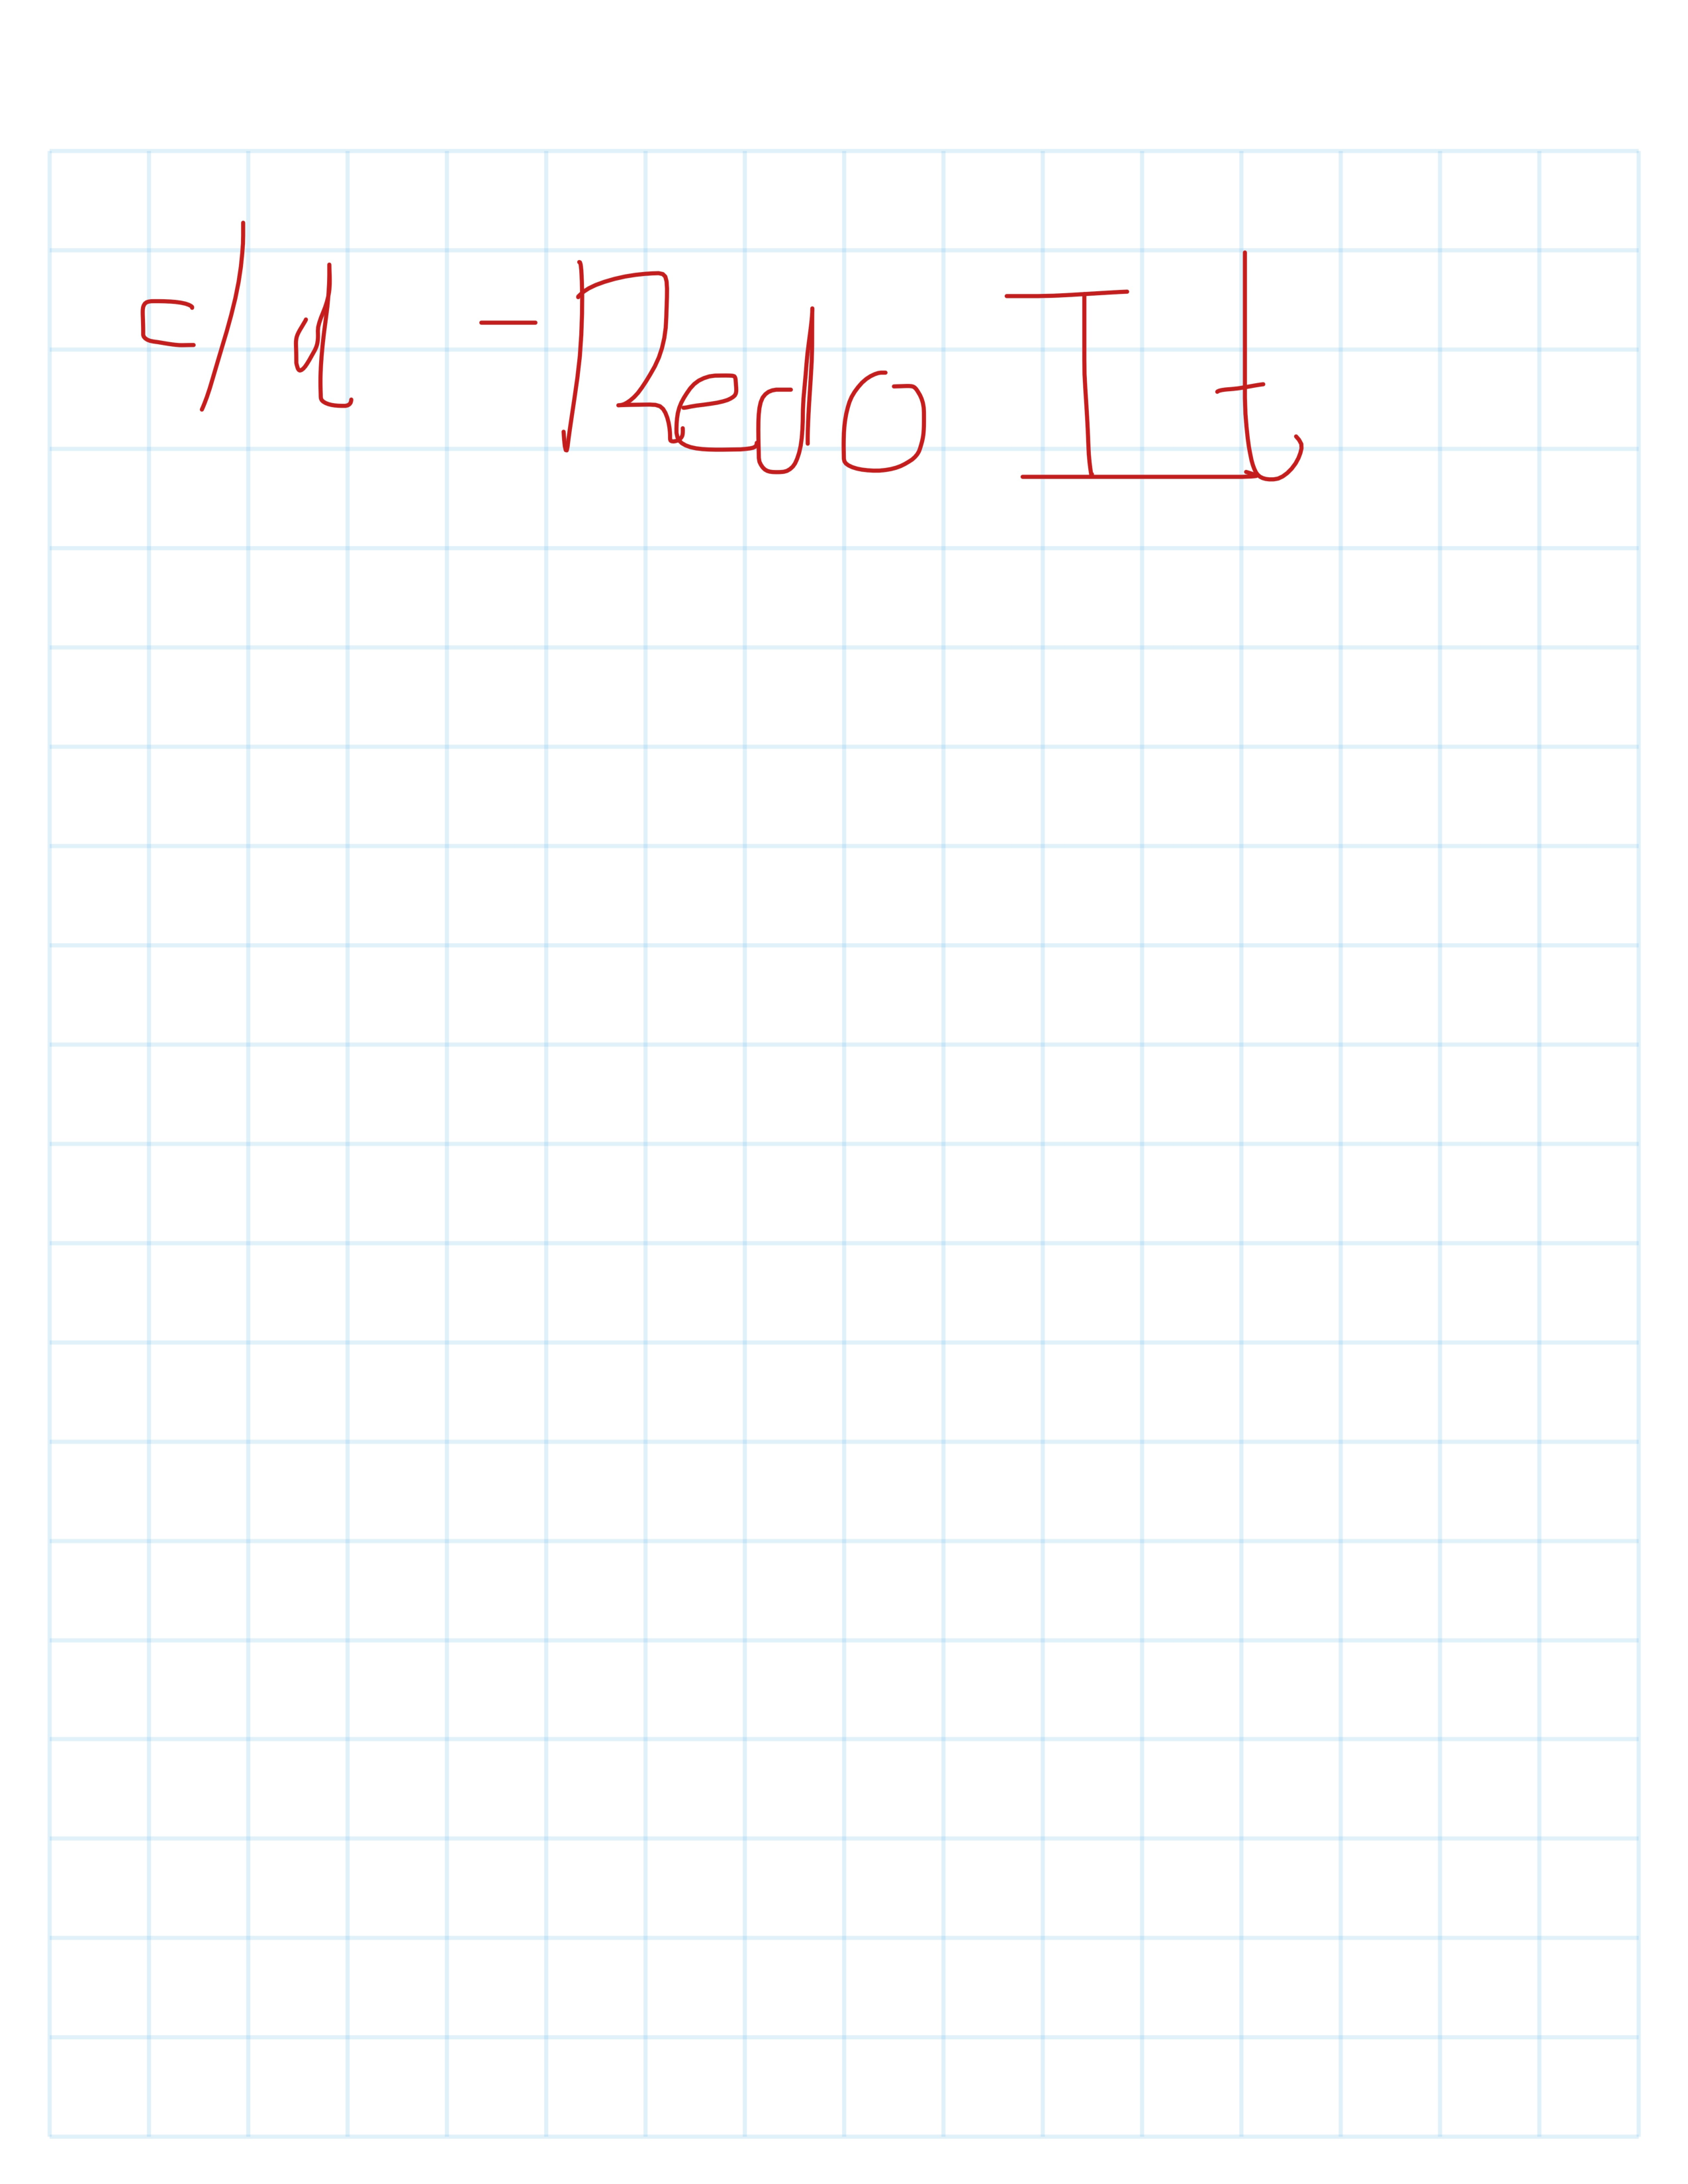 c/d - Redo It